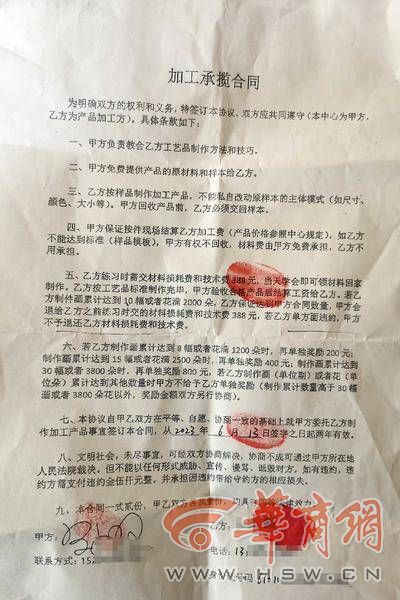 加工承揽合同
为明确双方的权利和义务,特签订本协议,双方应共同遵守(本中心为甲方,
乙方为产品加工方)。具体条款如下:
一、甲方负责教会乙方工艺品制作方法和技巧。
二、甲方免费提供产品的原材料和样本给乙方。
三、乙方按样品制作加工产品,不能私自改动原样本的主体模式(如尺寸、
颜色、大小等)。甲方回收产品前,乙方必须交回样本。
四、甲方保证按件现场结算乙方加工费(产品价格参照中心规定),如乙方
不能达到标准(样品模板),甲方有权不回收,材料费由甲方免费承担,乙方不
用承担。
五、乙方练习时需交材料损耗费和技术费388元,当天学会即可领材料回家
制作。乙方按工艺品标准制作完毕,甲方验收合格产品后结算工资给乙方。若乙
方制作画累计达到10幅或者花满2000朵,乙方保证达到甲方合同数量,甲方会
退给乙方之前练习时交的材料损耗费和技术费388元,若乙方单方面违约,甲方
不予退还乙方材料损耗费和技术费。
六、若乙方制作画累计达到8幅或者花满1200朵时,再单独奖励200元;
制作画累计达到15幅或者花满2500朵时,再单独奖励400元;制作画累计达到
30幅或者3800朵时,再单独奖励800元,若乙方制作画(单位副)或者花(单
位朵)累计达到其他数量时甲方不给予乙方单独奖励(制作累计数量高于30幅
画或者3800朵花以外,奖励金额双方另行协商)
七、本协议自甲乙双方在平等、自愿、协商一致的基础上就甲方委托乙方制
作加工产品事宜签订本合同,从2023年6月13日签字之日起两年有效。
八、文明社会,未尽事宜,可经双方协商解决,协商不成可通过甲方所在地
人民法院裁决。但不能以任何形式威胁、宣传、谩骂、诋毁对方,如有违约,违
约方需支付违约金伍仟元整,并承担因违约带给守约方的相应损失。
九、本合同一式贰份,甲乙双方各执壹份,均具有同等法律效力。
甲方:
电话:13
联系方式:152
身份证号码
华商网
WWW.HSW.CN